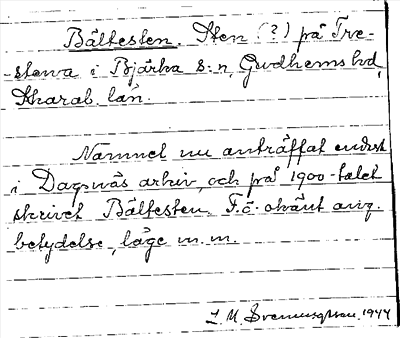 Bältesten. Sten (?) på Tre-
-stena i Bjärka s:n, Gudhems hd,
Skarab. län.
Namnet nu anträffat endast
i Dagsnäs arkiv, och på 1900-talet
skrivet Bältesten. F.ö. okänt ang.
betydelse, läge m.m.
L. M. 1944